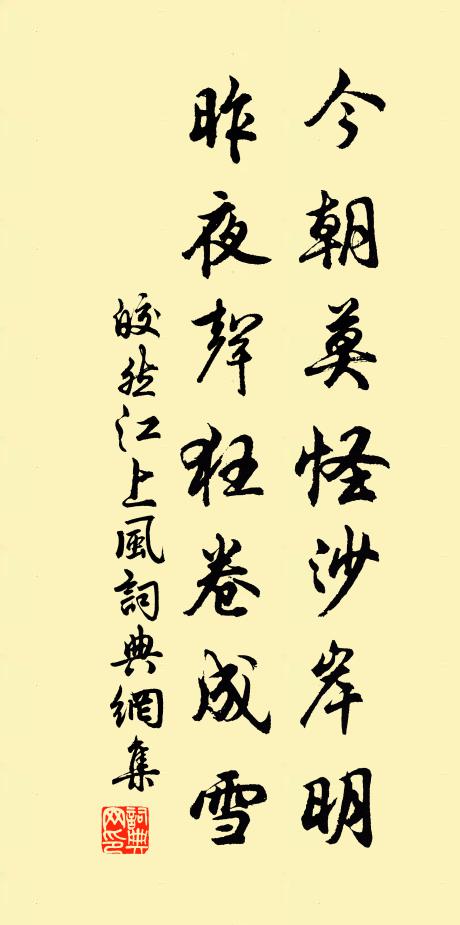 今朝莫怪沙岸明
昨夜聲狂卷成雪
皎然江上風詞典網集
詞典
网印